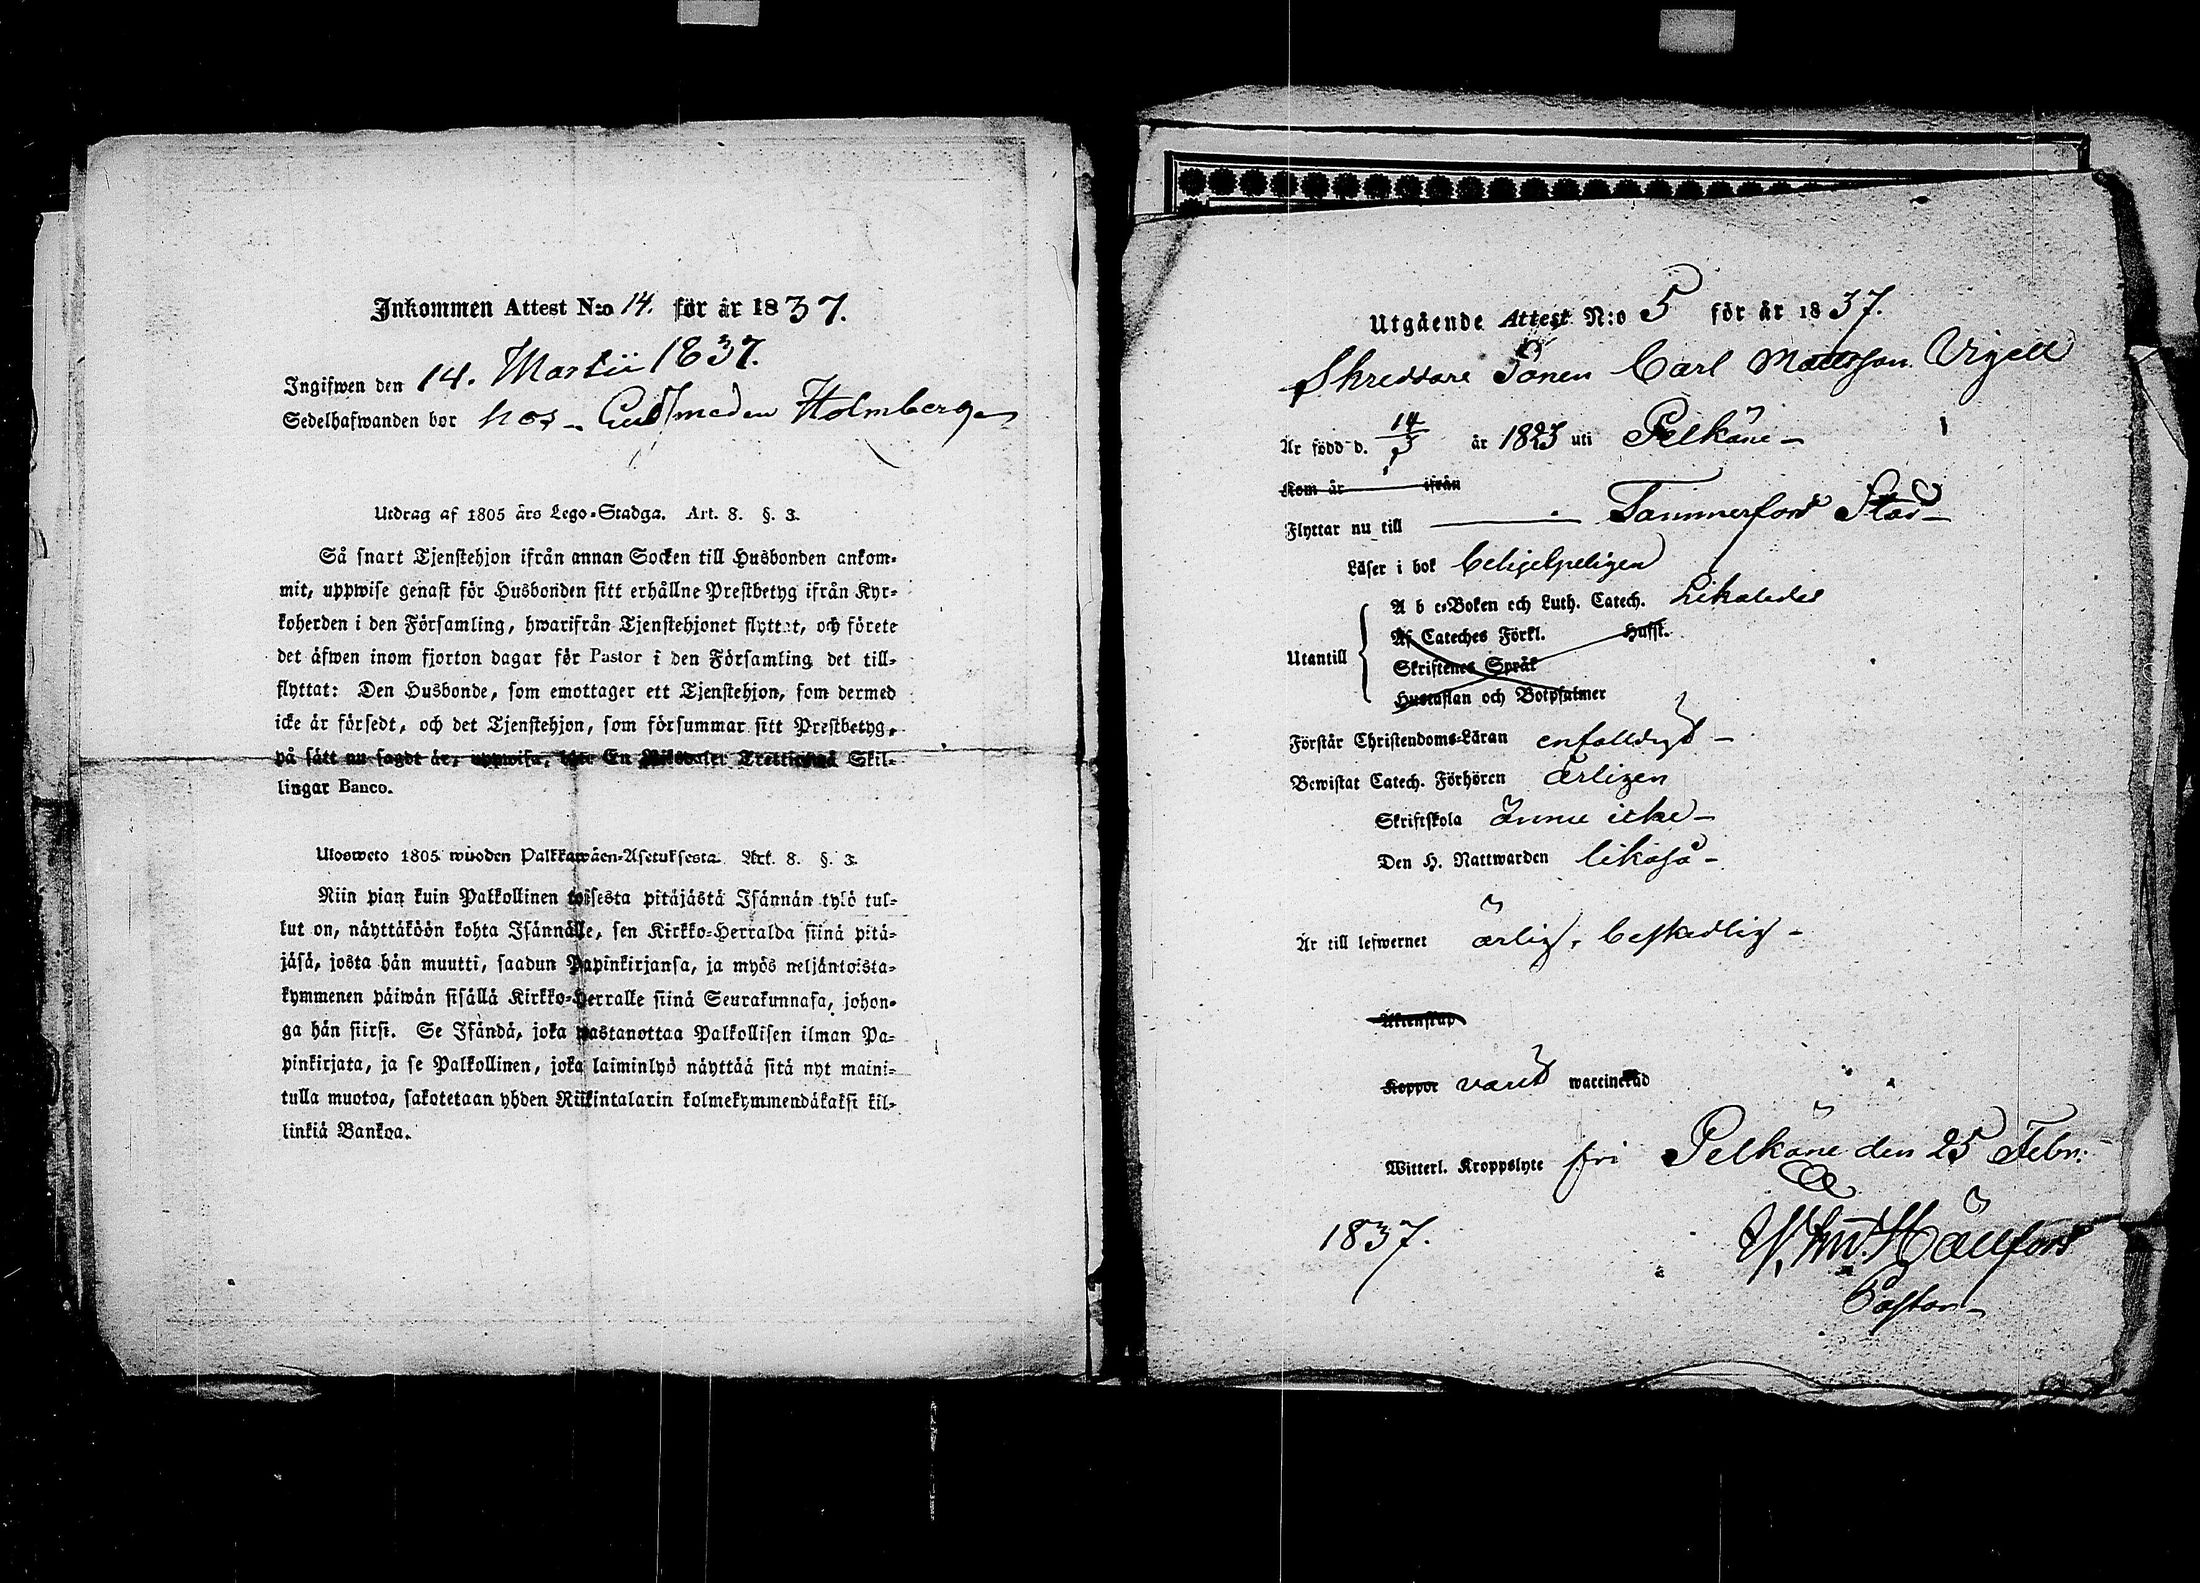 Inkommen Attest N:o 14. för år 1837.
Ingifwen den 14. Martii 1837.
Sedelhafwanden bor hos Guldsmeden Holmberg
Utdrag af 1805 års Lego-Stadga. Art. 8. §. 3.
Så snart Tjenstehjon ifrån annan Socken till Husbonden ankom-
mit, uppwise genast för Husbonden sitt erhållne Prestbetyg ifrån Kyr-
koherden i den Församling, hwarifrån Tjenstehjonet flyttat, och förete
det äfwen inom fjorton dagar för Pastor i den Församling det till-
flyttat: Den Husbonde, som emottager ett Tjenstehjon, som dermed
icke är försedt, och det Tjenstehjon, som försummar sitt Prestbetyg,
på sätt nu sagdt är, uppwisa, böte En Riksdaler Trettiotwå Skil-
lingar Banco.
Ulosweto 1805 wuoden Palkkawäen-Asetuksesta. Art. 8. §. 3.
Niin pian kuin Palkollinen toisesta pitäjästä Isännän tylö tul-
lut on, näyttäköön kohta Isännälle, sen Kirkko-Herralda siinä pitä-
jäsä, josta hän muutti, saadun Papinkirjansa, ja myös neljäntoista-
kymmenen päiwän sisällä Kirkko-Herralle siinä Seurakunnasa, johon-
ga hän siirsi. Se Isändä, joka wastanottaa Palkollisen ilman Pa-
pinkirjata, ja se Palkollinen, joka laiminlyö näyttää sitä nyt maini-
tulla muotoa, sakotetaan yhden Riikintalarin kolmekymmendäkaksi kil-
linkiä Bankoa.
Utgående Attest N:o 5 för år 1837.
Skreddare Sonen Carl Mattsson
Är född d. 14/3 år 1823 uti Pelkäne
Kom år ifrån
Flyttar nu till Tammerfors Stad
Läser i bok behjelpeligen
A b c-Boken och Luth. Catech. Likaledes
Af Cateches Förkl. Husst.
Utantill Skriftenes Språk
Hustaflan och Botpsalmer
Förstår Christendoms-Läran enfalldigt
Bewistat Catech. Förhören årligen
Skriftskola ännu icke
Den H. Nattwarden likaså
Är till lefwernet ärlig, beskedlig
Äktenskap
Koppor varit waccinerad
Witterl. Kroppslyte fri Pelkäne den 25 Febr:
1837.
Hällfors
Pastor